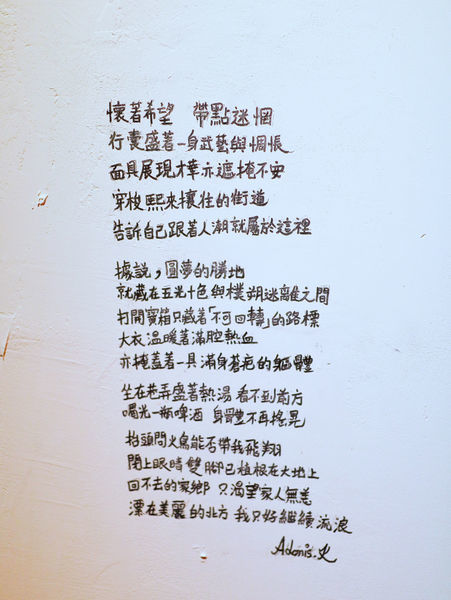 懷著希望 帶點迷惘
行囊盛著一身武藝與惆悵
面具展現才華亦遮掩不安
穿梭熙來攘往的街道
告訴自己跟著人潮就屬於這裡
據說，圓夢的勝地
就藏在五光十色與樸朔迷離之間
打開寶箱只藏著「不可回轉」的路標
大衣溫暖著滿腔熱血
亦掩蓋著一具滿身蒼疤的軀體
坐在巷弄盛著熱湯 看不到前方
喝光一瓶啤酒 身體不再搖晃
抬頭問火鳥能否帶我飛翔
閉上眼睛雙腳已植根在大地上
回不去的家鄉 只渴望家人無恙
漂在美麗的北方 我只好繼續流浪
Adonis.火